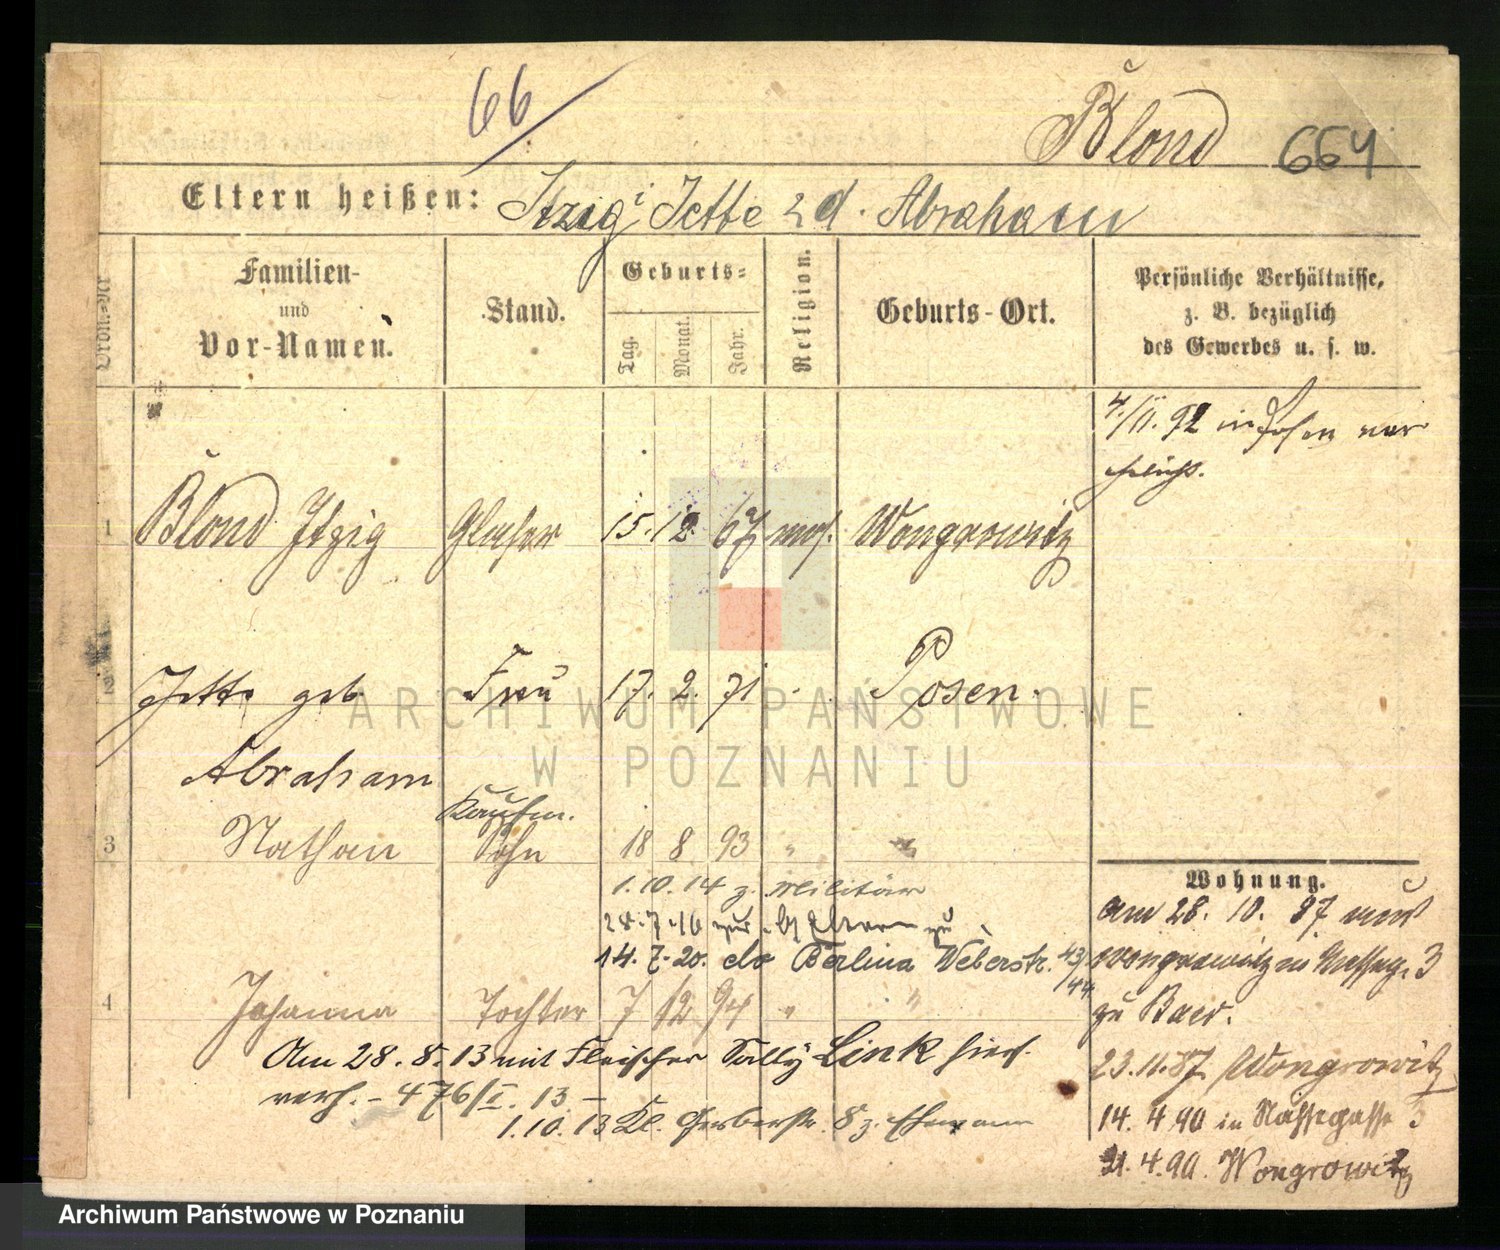 66
Blond 664
Eltern heißen: Itzig Jette 2 d. Abraham
Ordn.-Nr
Familien-
und
Vor-Namen.
Stand.
Geburts=
Tag.
Monat.
Jahr.
Religion.
Geburts-Ort.
Persönliche Verhältnisse,
z. B. bezüglich
des Gewerbes u. s. w.
4./11. 92 in Posen ver
ehelicht.
1 Blond Itzig Glaser 15. 12. 67 mos. Wongrowitz
2 Jette geb. Frau 17. 2. 71 Posen.
Abraham
Kaufm.
3 Nathan Sohn 18 8 93 "
1.10.14 z. Militär
28.7.16 zur Eltern zu
14.7.20. do Berlin Weberstr. 43/
44
4 Johanna Tochter 7 12 94 " "
Am 28.8.13 mit Fleischer Sally Link hies.
verh. - 476/I. 13 -
1.10.13 Kl. Gerberstr. 8 z. Ehemann
Wohnung.
Am 28. 10. 87 von
Wongrowitz n Nasseg. 3
zu Baer.
23.11.87 Wongrowitz
14. 4 90 in Nassegasse 3
21.4.90. Wongrowitz
ARCHIWUM PAŃSTWOWE
W POZNANIU
Archiwum Państwowe w Poznaniu